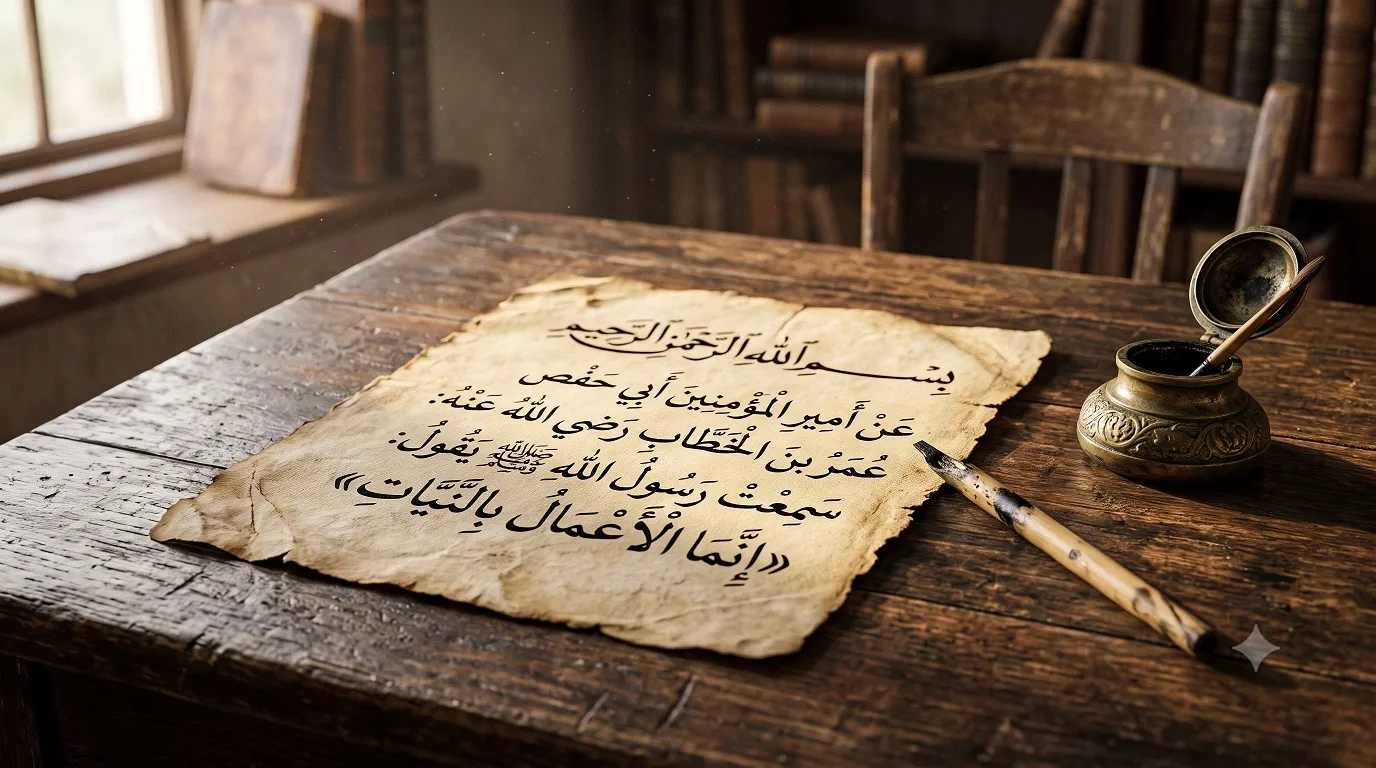 بِسْمِ ٱللَّهِ ٱلرَّحْمَٰنِ ٱلرَّحِيمِ
عَنْ أَمِيرِ الْمُؤْمِنِينَ أَبِي حَفْصٍ
عُمَرُ بنَ الْخَطَّابِ رَضِي اللهُ عَنْهُ:
سَمِعْتْ رَسُولَ اللهِ ﷺ يَقُولُ:
«إِنَّمَا الْأَعْمَالُ بِالنَّيَّاتِ»